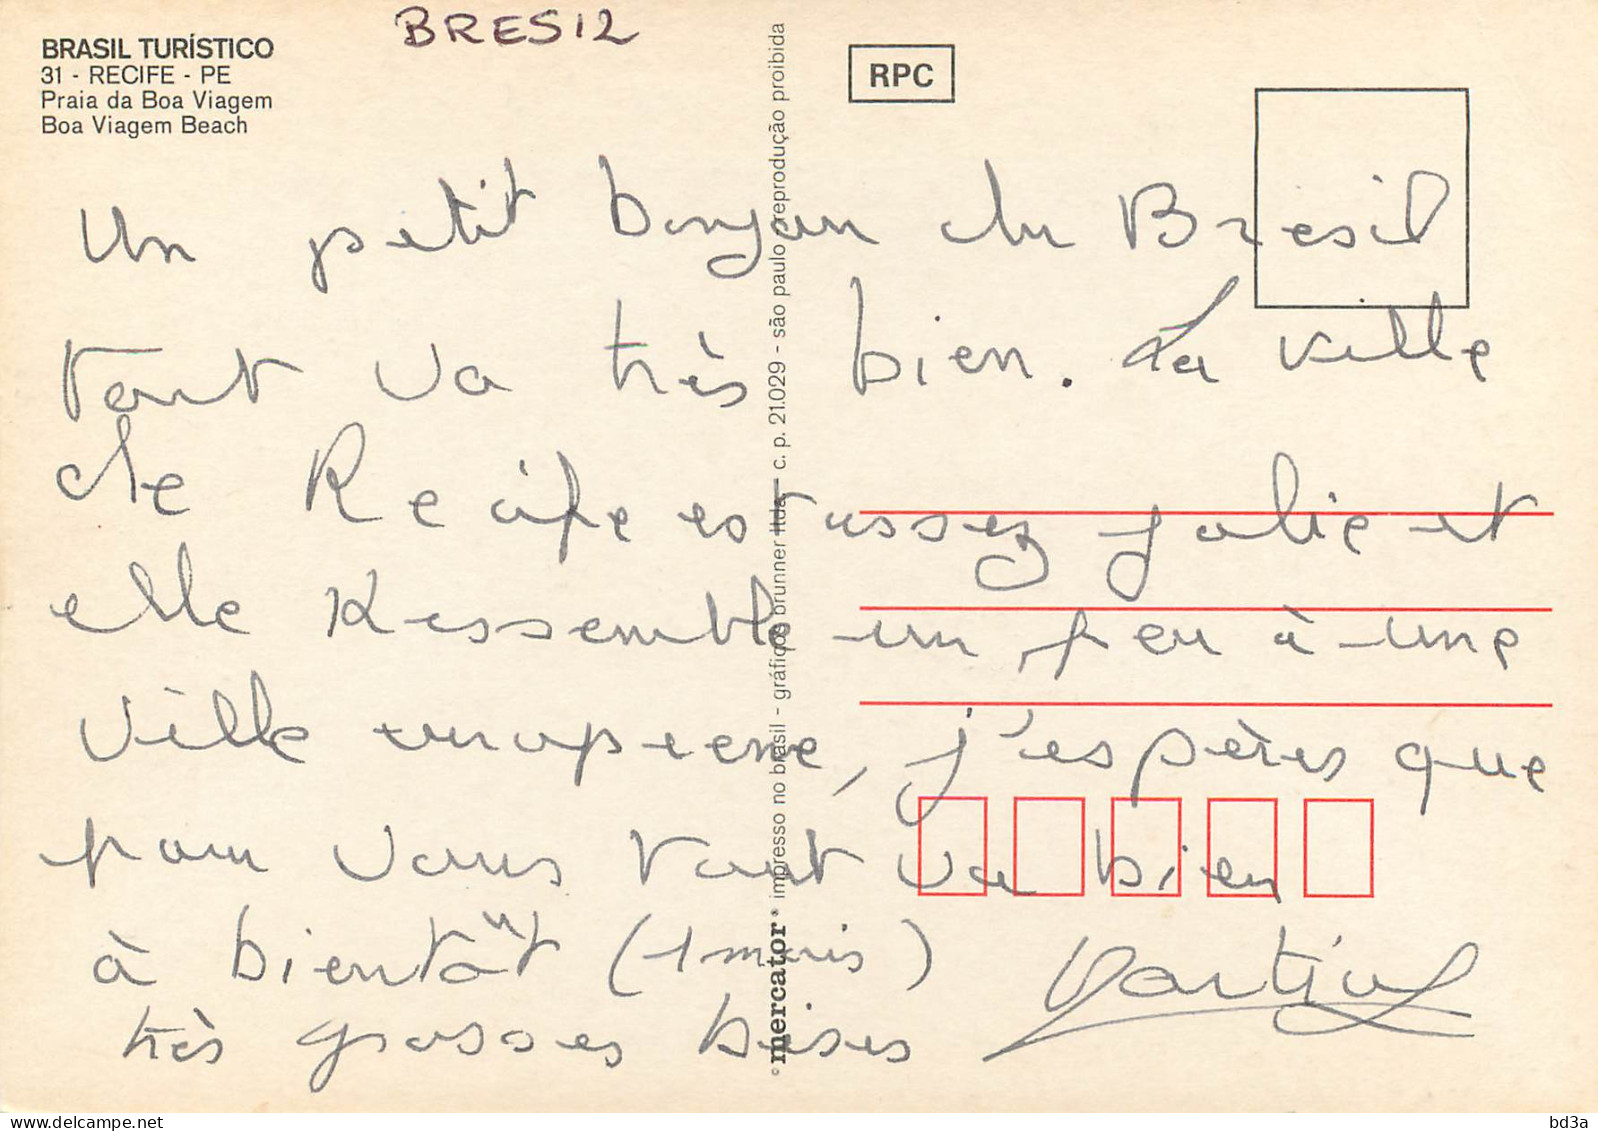 BRESIL
BRASIL TURÍSTICO
31 - RECIFE - PE
Praia da Boa Viagem
Boa Viagem Beach
RPC
Un petit bonjour du Bresil
tout va très bien. La ville
de Recife est assez jolie et
elle ressemble un peu à une
ville europeene, j'espères que
pour vous tout va bien
à bientôt (1 mois)
très grosses bises
mercator® impresso no brasil - gráficos brunner ltda - c. p. 21.029 - são paulo - reprodução proibida
bd3a